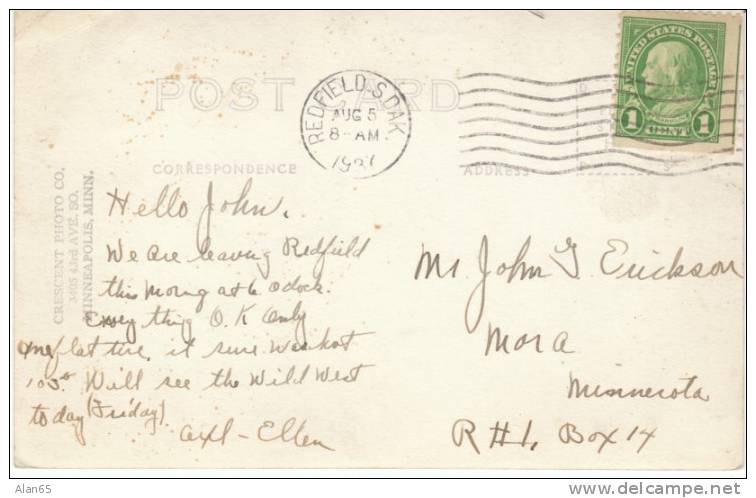 POST CARD
REDFIELD, S.DAK.
AUG 5
8-AM
UNITED STATES POSTAGE
1 CENT 1
CORRESPONDENCE
ADDRESS
CRESCENT PHOTO CO.
MINNEAPOLIS, MINN.
Hello John.
We are leaving Redfield
this morng at 6 oclock.
Every thing O.K Only
one flat tire. it sure was hot
103° Will see the Wild West
to day (Friday)
Axl - Ellen
Mr John G. Erickson
Mora
Minnesota
R #1, Box 14
Alan65
delcampe.net